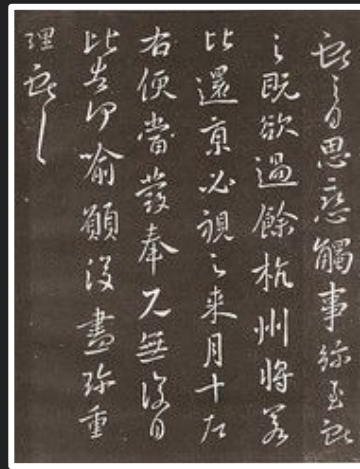 獻之白思戀觸事彌至獻
之既欲過餘杭州將若
比還京必視之来月十左
右便當發奉見無復日
比告何喻願復盡珍重
理獻之